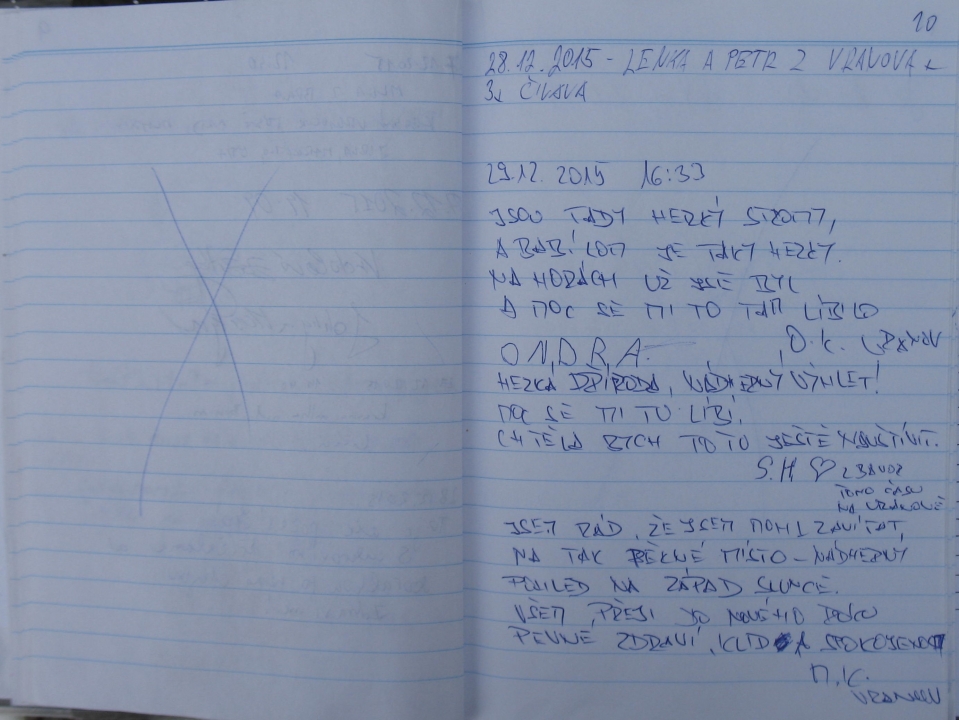 20
28.12.2015 - LENKA A PETR Z VRANOVA +
3x ČIVAVA
29.12. 2015 16:33
JSOU TADY HEZKÝ STROMY,
A BABÍ LOM JE TAKY HEZKÝ.
NA HORÁCH UŽ JSE BYL
A MOC SE MI TO TAM LÍBILO
O.K. VRANOV
ONDRA.
HEZKÁ PŘÍRODA, NÁDHERNÝ VÝHLET!
MOC SE MI TO LÍBÍ.
CHTĚLA BYCH TOTO JEŠTĚ NAVŠTÍVIT.
S.H ♡
TOHO ČASU
NA VRANOVĚ
JSEM RÁD, ŽE JSEM MOHL ZAVÍTAT,
NA TAK PĚKNÉ MÍSTO - NÁDHERNÝ
POHLED NA ZÁPAD SLUNCE.
VŠEM PŘEJI DO NOVÉHO ROKU
PEVNÉ ZDRAVÍ, KLID A SPOKOJENOST
M.K.
VRANOV